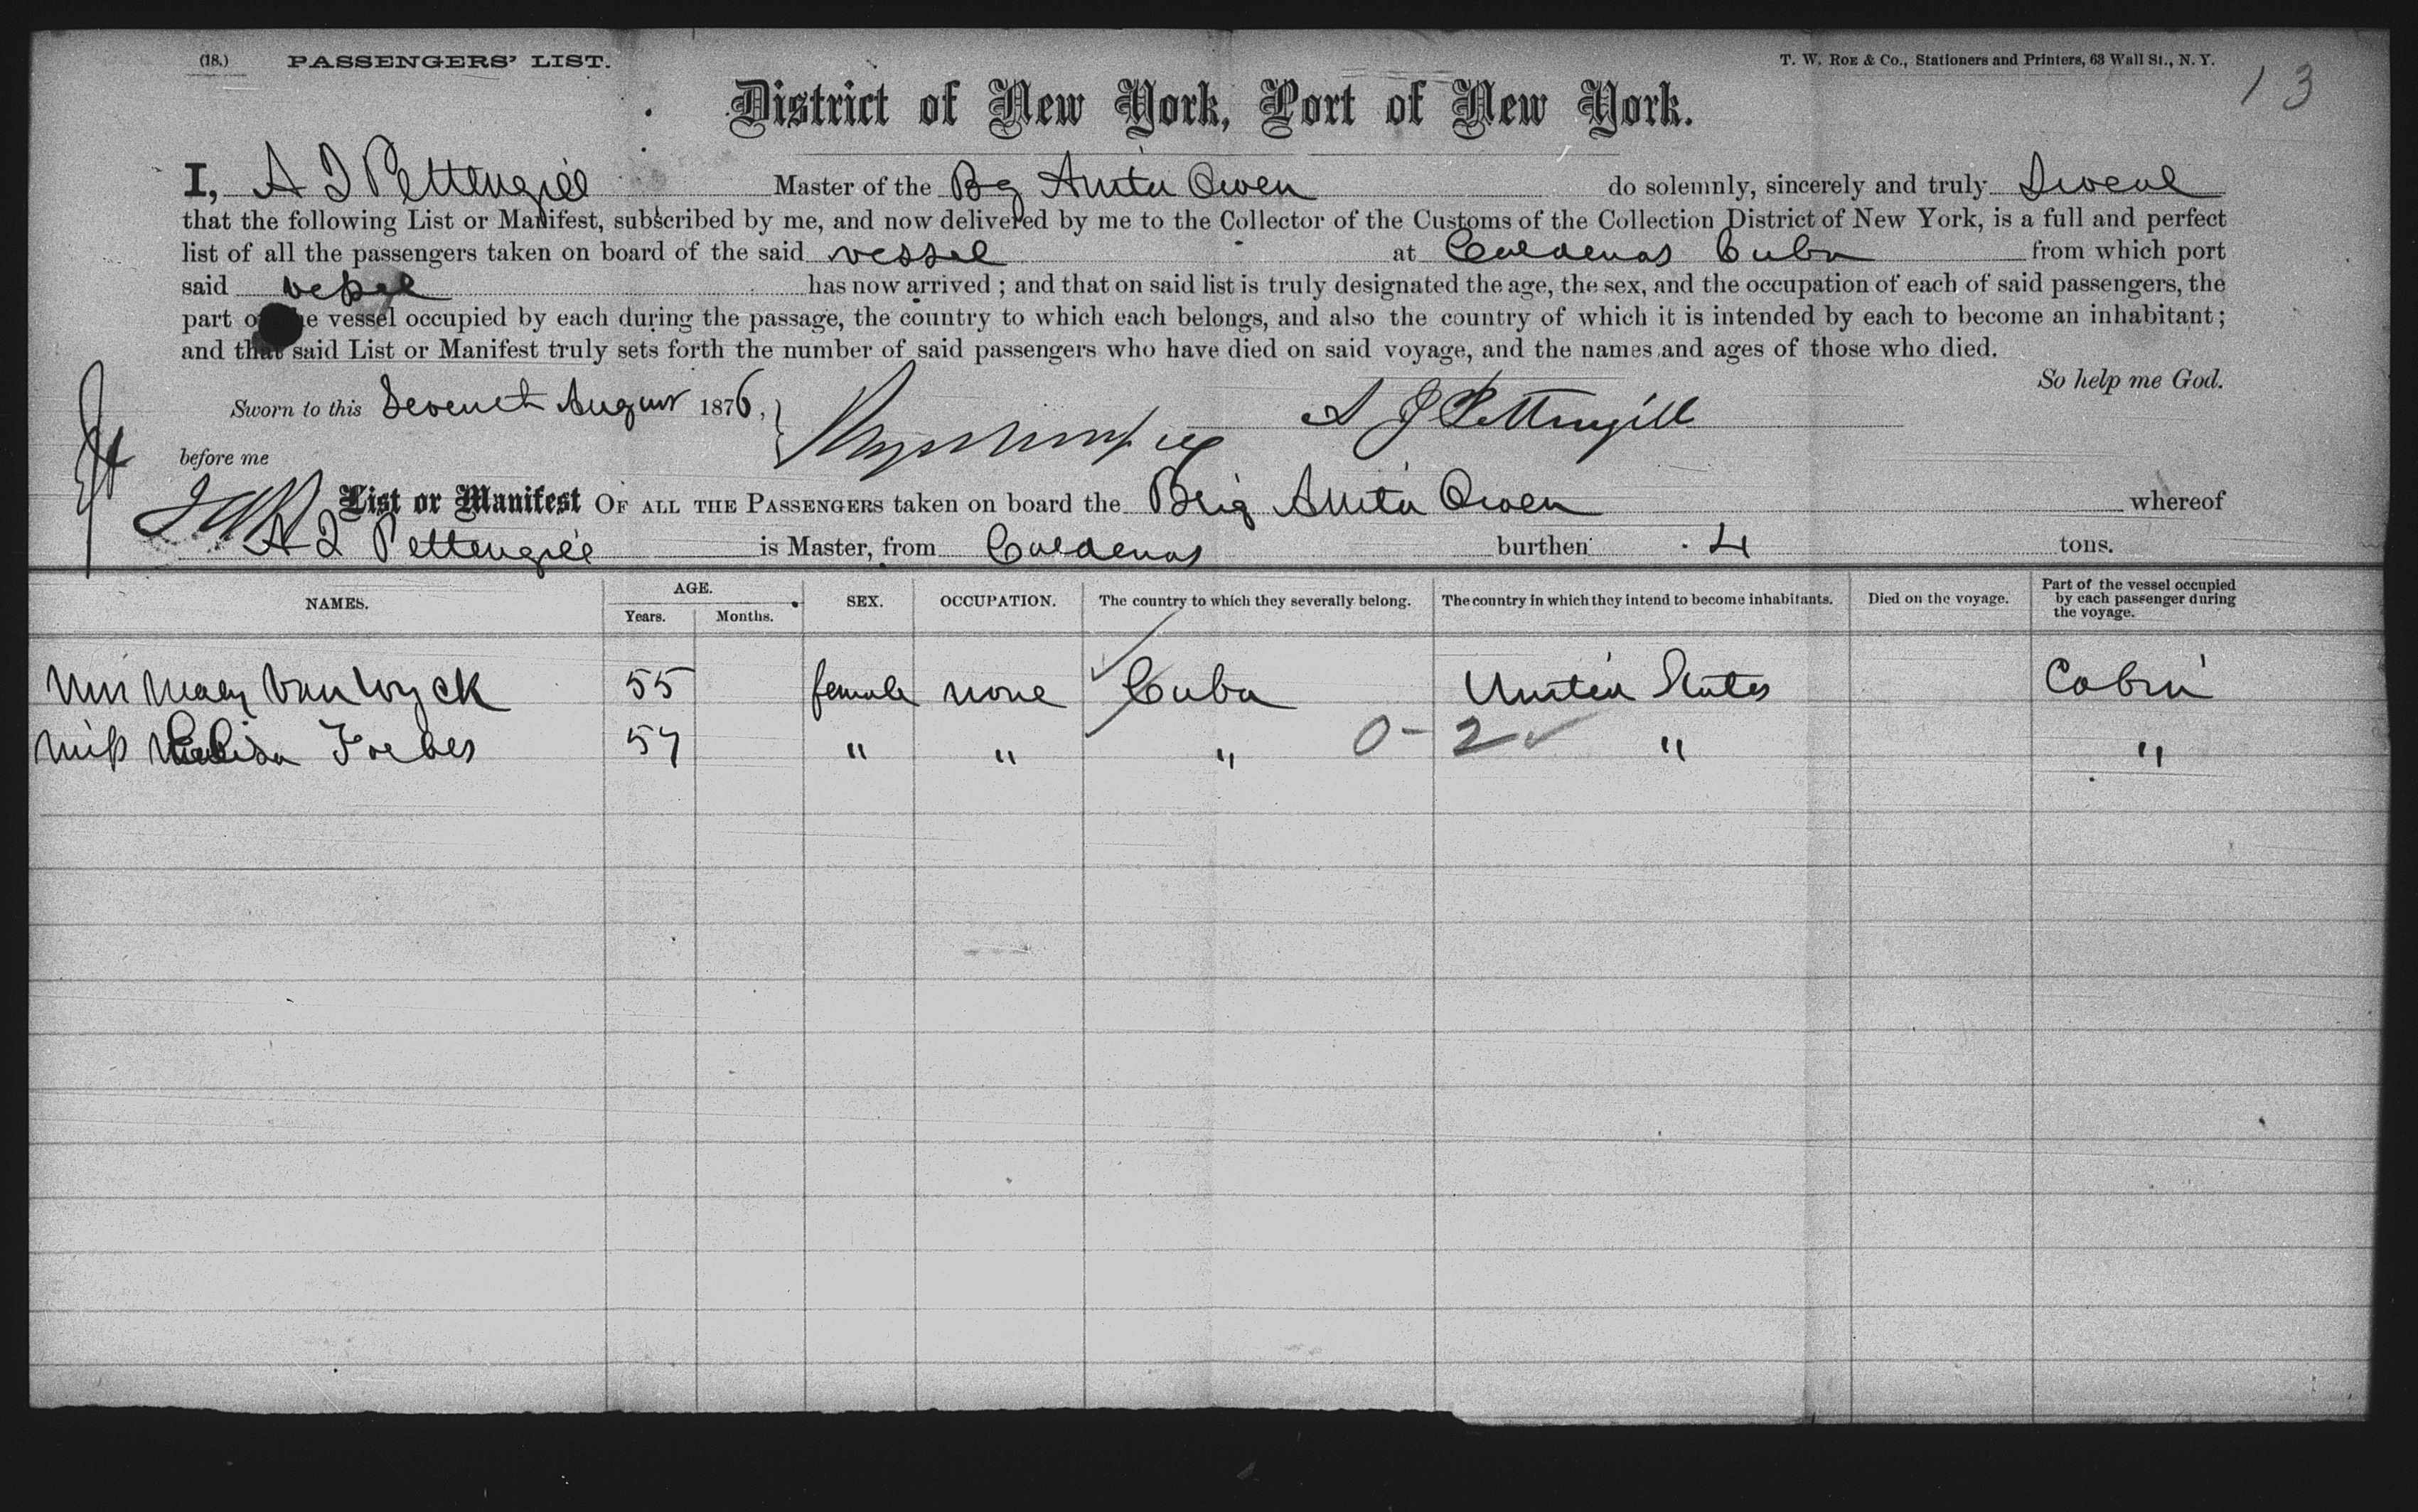 (18.) PASSENGERS' LIST. T. W. ROE & Co., Stationers and Printers, 63 Wall St., N. Y.
13
District of New York, Port of New York.
I, A J Pettengill Master of the Bg Anita Owen do solemnly, sincerely and truly Swear
that the following List or Manifest, subscribed by me, and now delivered by me to the Collector of the Customs of the Collection District of New York, is a full and perfect
list of all the passengers taken on board of the said vessel at Cardenas Cuba from which port
said vessel has now arrived ; and that on said list is truly designated the age, the sex, and the occupation of each of said passengers, the
part of the vessel occupied by each during the passage, the country to which each belongs, and also the country of which it is intended by each to become an inhabitant ;
and that said List or Manifest truly sets forth the number of said passengers who have died on said voyage, and the names and ages of those who died.
So help me God.
Sworn to this Seventh August 1876, A J Pettengill
before me
List or Manifest OF ALL THE PASSENGERS taken on board the Brig Anita Owen whereof
A J Pettengill is Master, from Cardenas burthen 4 tons.
NAMES. AGE. Years. Months. SEX. OCCUPATION. The country to which they severally belong. The country in which they intend to become inhabitants. Died on the voyage. Part of the vessel occupied by each passenger during the voyage.
Mrs Mary Van Wyck 55 female none Cuba United States Cabin
Miss Forbes 57 " " " 0-2 " "